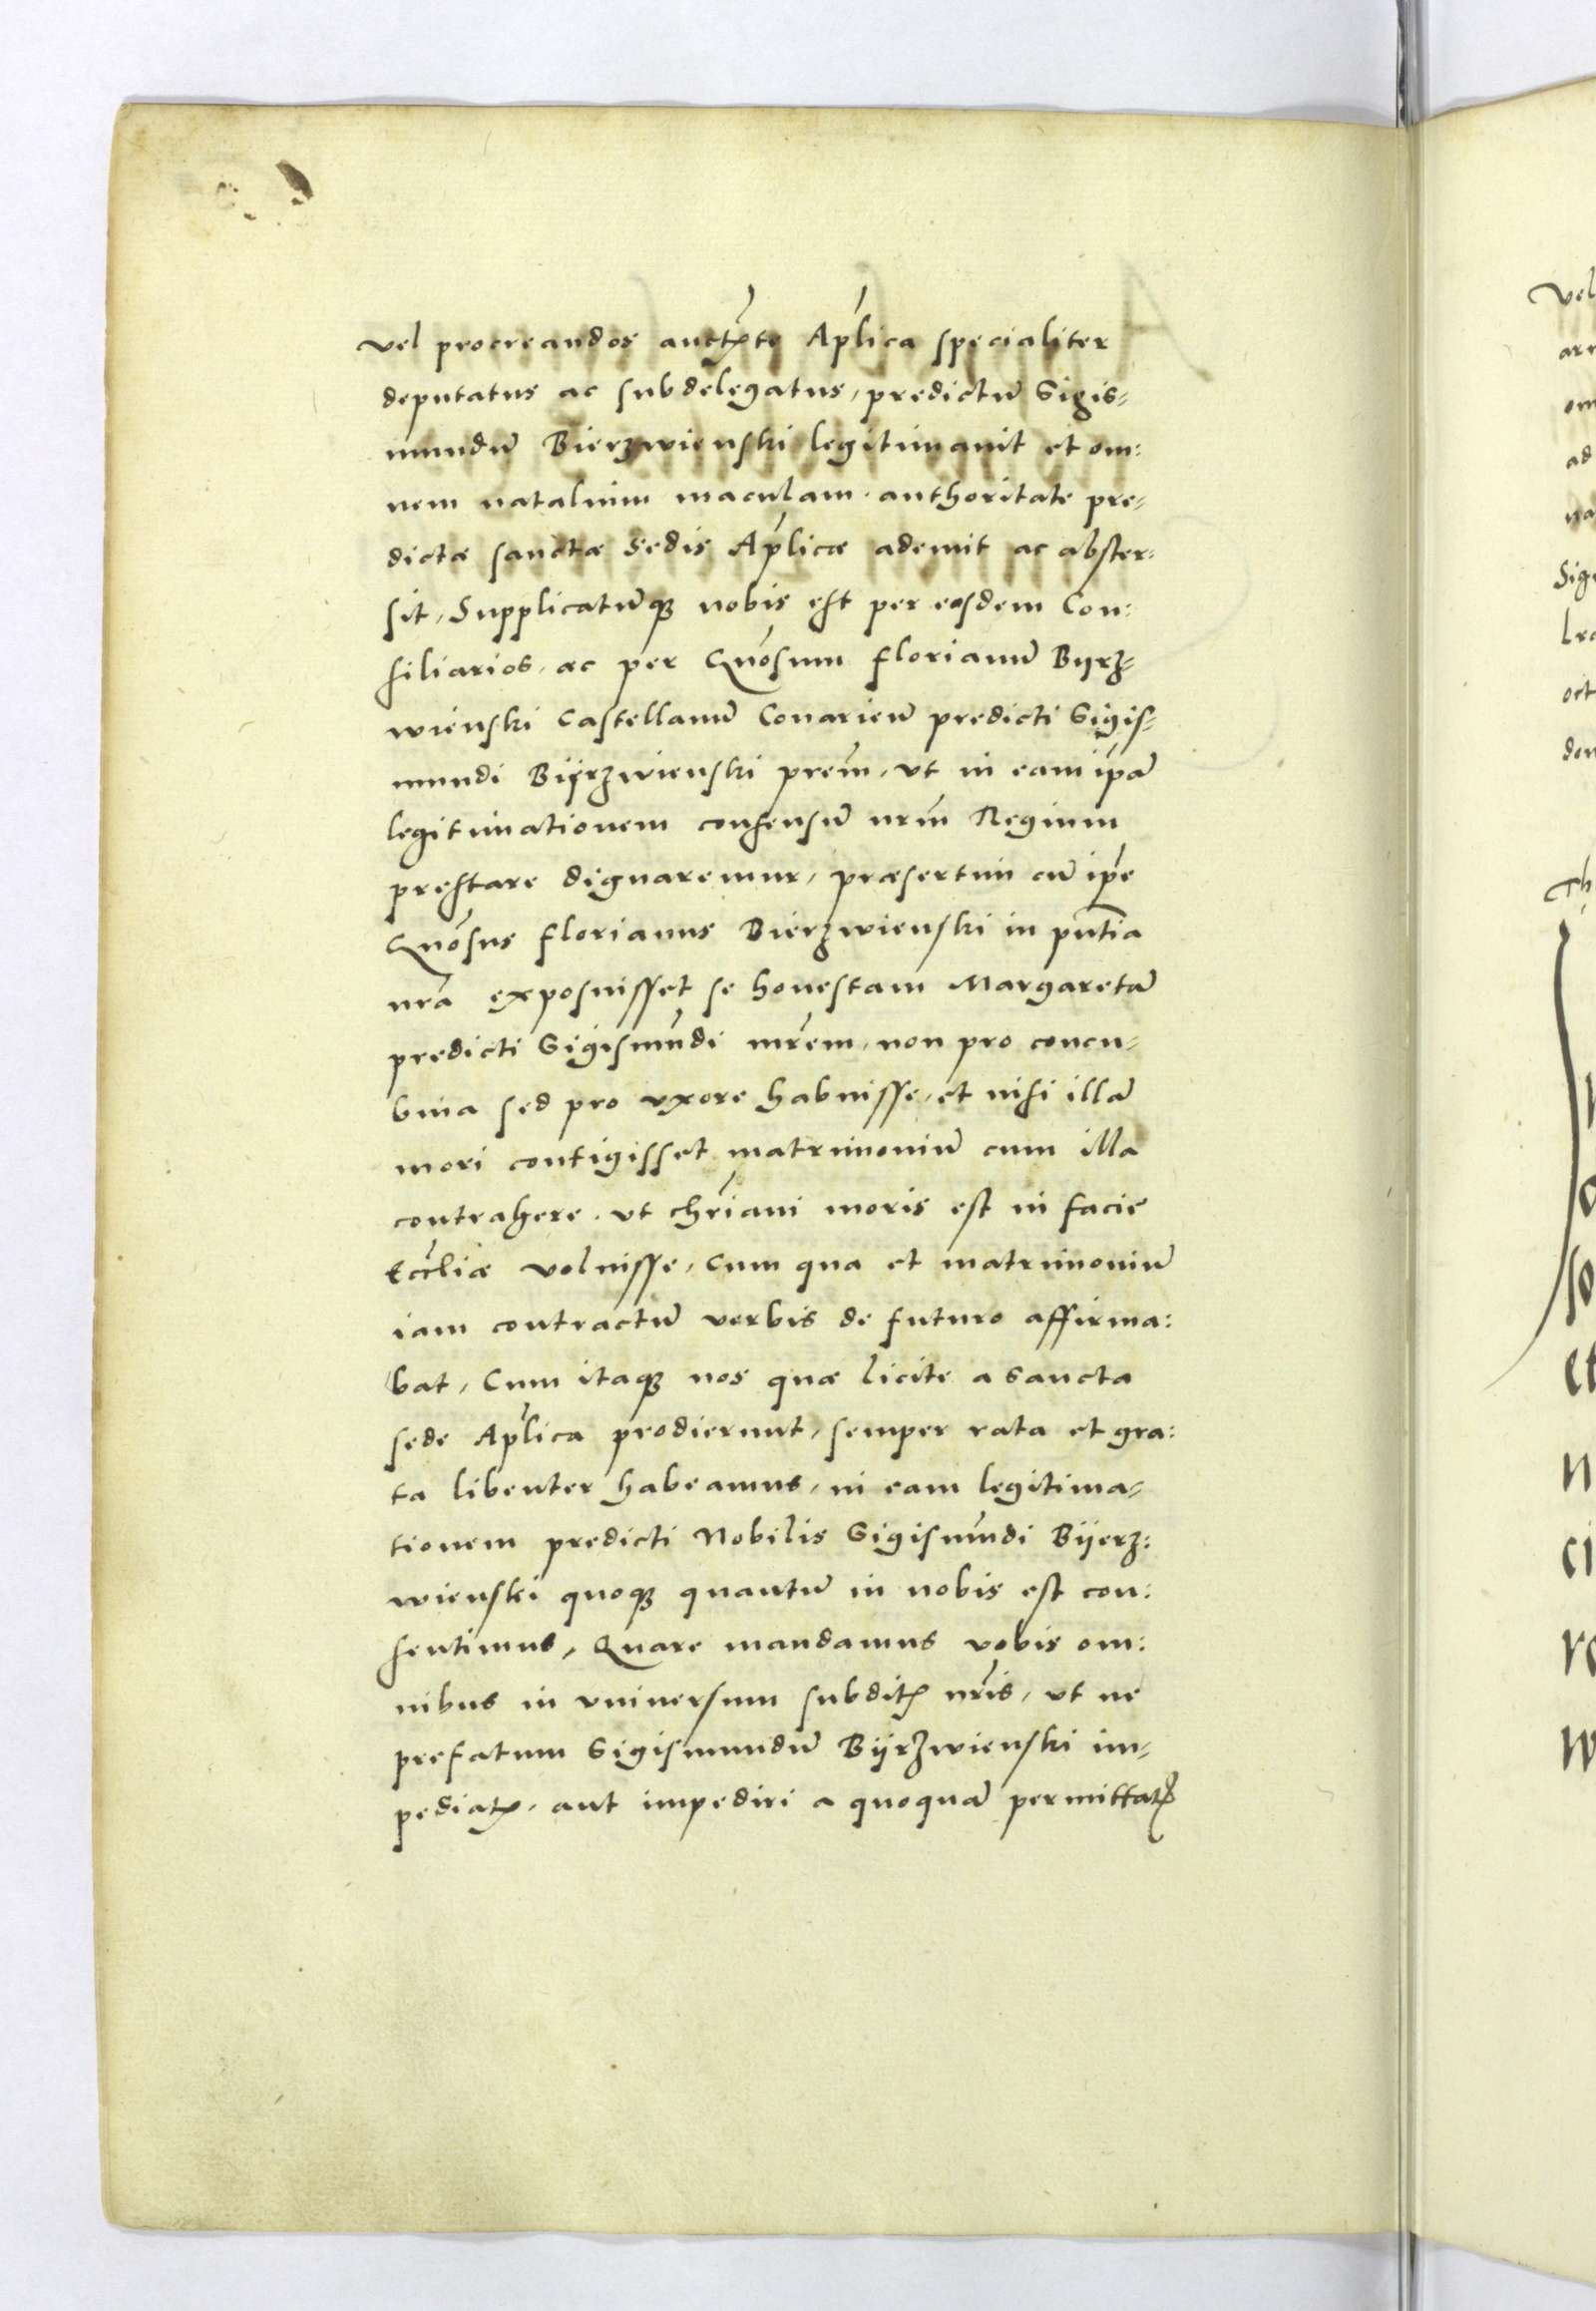 vel procreandos auctꝭte Ap̃lica specialiter
deputatus ac subdelegatus, predictũ Sigis=
mundũ Bierzwienski legitimauit et om:
nem natalium maculam. authoritate pre=
dictæ sanctæ Sedis Ap̃licæ ademit ac abster:
sit, Supplicatũqꝫ nobis est per eosdem Con:
siliarios, ac per Gñosum Florianũ Byrz=
wienski Castellanũ Conarieñ predicti Sigis=
mundi Bÿrzwienski prem̃, vt in eam ip̃ã
legitimationem consensũ nrm̃ Regium
prestare dignaremur, præsertim cũ ip̃e
Gñosus Florianus Bierzwienski in pñtia
nrã exposuisset se honestam Margaretã
predicti Sigismũdi mr̃em, non pro concu=
bina sed pro vxore habuisse, et nisi illã
mori contigisset matrimoniũ cum illa
contrahere. vt chr̃iani moris est in facie
Eccl̃iæ voluisse, Cum qua et matrimoniũ
iam contractũ verbis de futuro affirma:
bat, Cum itaqꝫ nos quæ licite a Sancta
sede Ap̃lica prodierunt, semper rata et gra:
ta libenter habeamus, in eam legitima=
tionem predicti Nobilis Sigismũdi Bÿerz:
wienski quoqꝫ quantũ in nobis est con:
sentimus, Quare mandamus vobis om:
nibus in vniuersum subditꝭ nr̃is, vt ne
prefatum Sigismundũ Bÿrzwienski im=
pediatꝭ, aut impediri a quoquã permittatꝭ